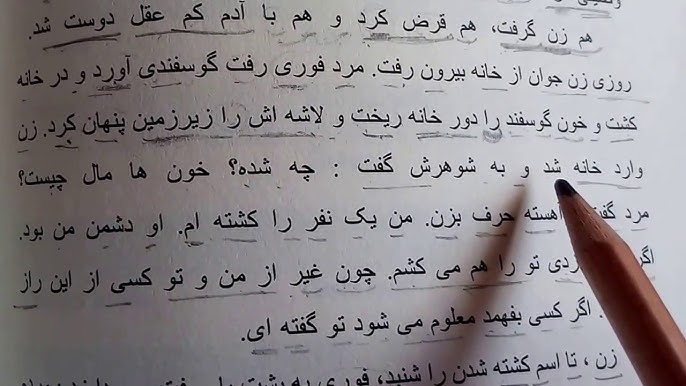 هم زن گرفت، هم قرض کرد و هم با آدم کم عقل دوست شد.
روزی زن جوان از خانه بیرون رفت. مرد فوری رفت گوسفندی آورد و در خانه
کشت و خون گوسفند را دور خانه ریخت و لاشه اش را زیرزمین پنهان کرد. زن
وارد خانه شد و به شوهرش گفت : چه شده؟ خون ها مال چیست؟
مرد گفت آهسته حرف بزن. من یک نفر را کشته ام. او دشمن من بود.
اگر تو را هم می کشم. چون غیر از من و تو کسی از این راز
اگر کسی بفهمد معلوم می شود تو گفته ای.
زن ، تا اسم کشته شدن را شنید، فوری به پشت